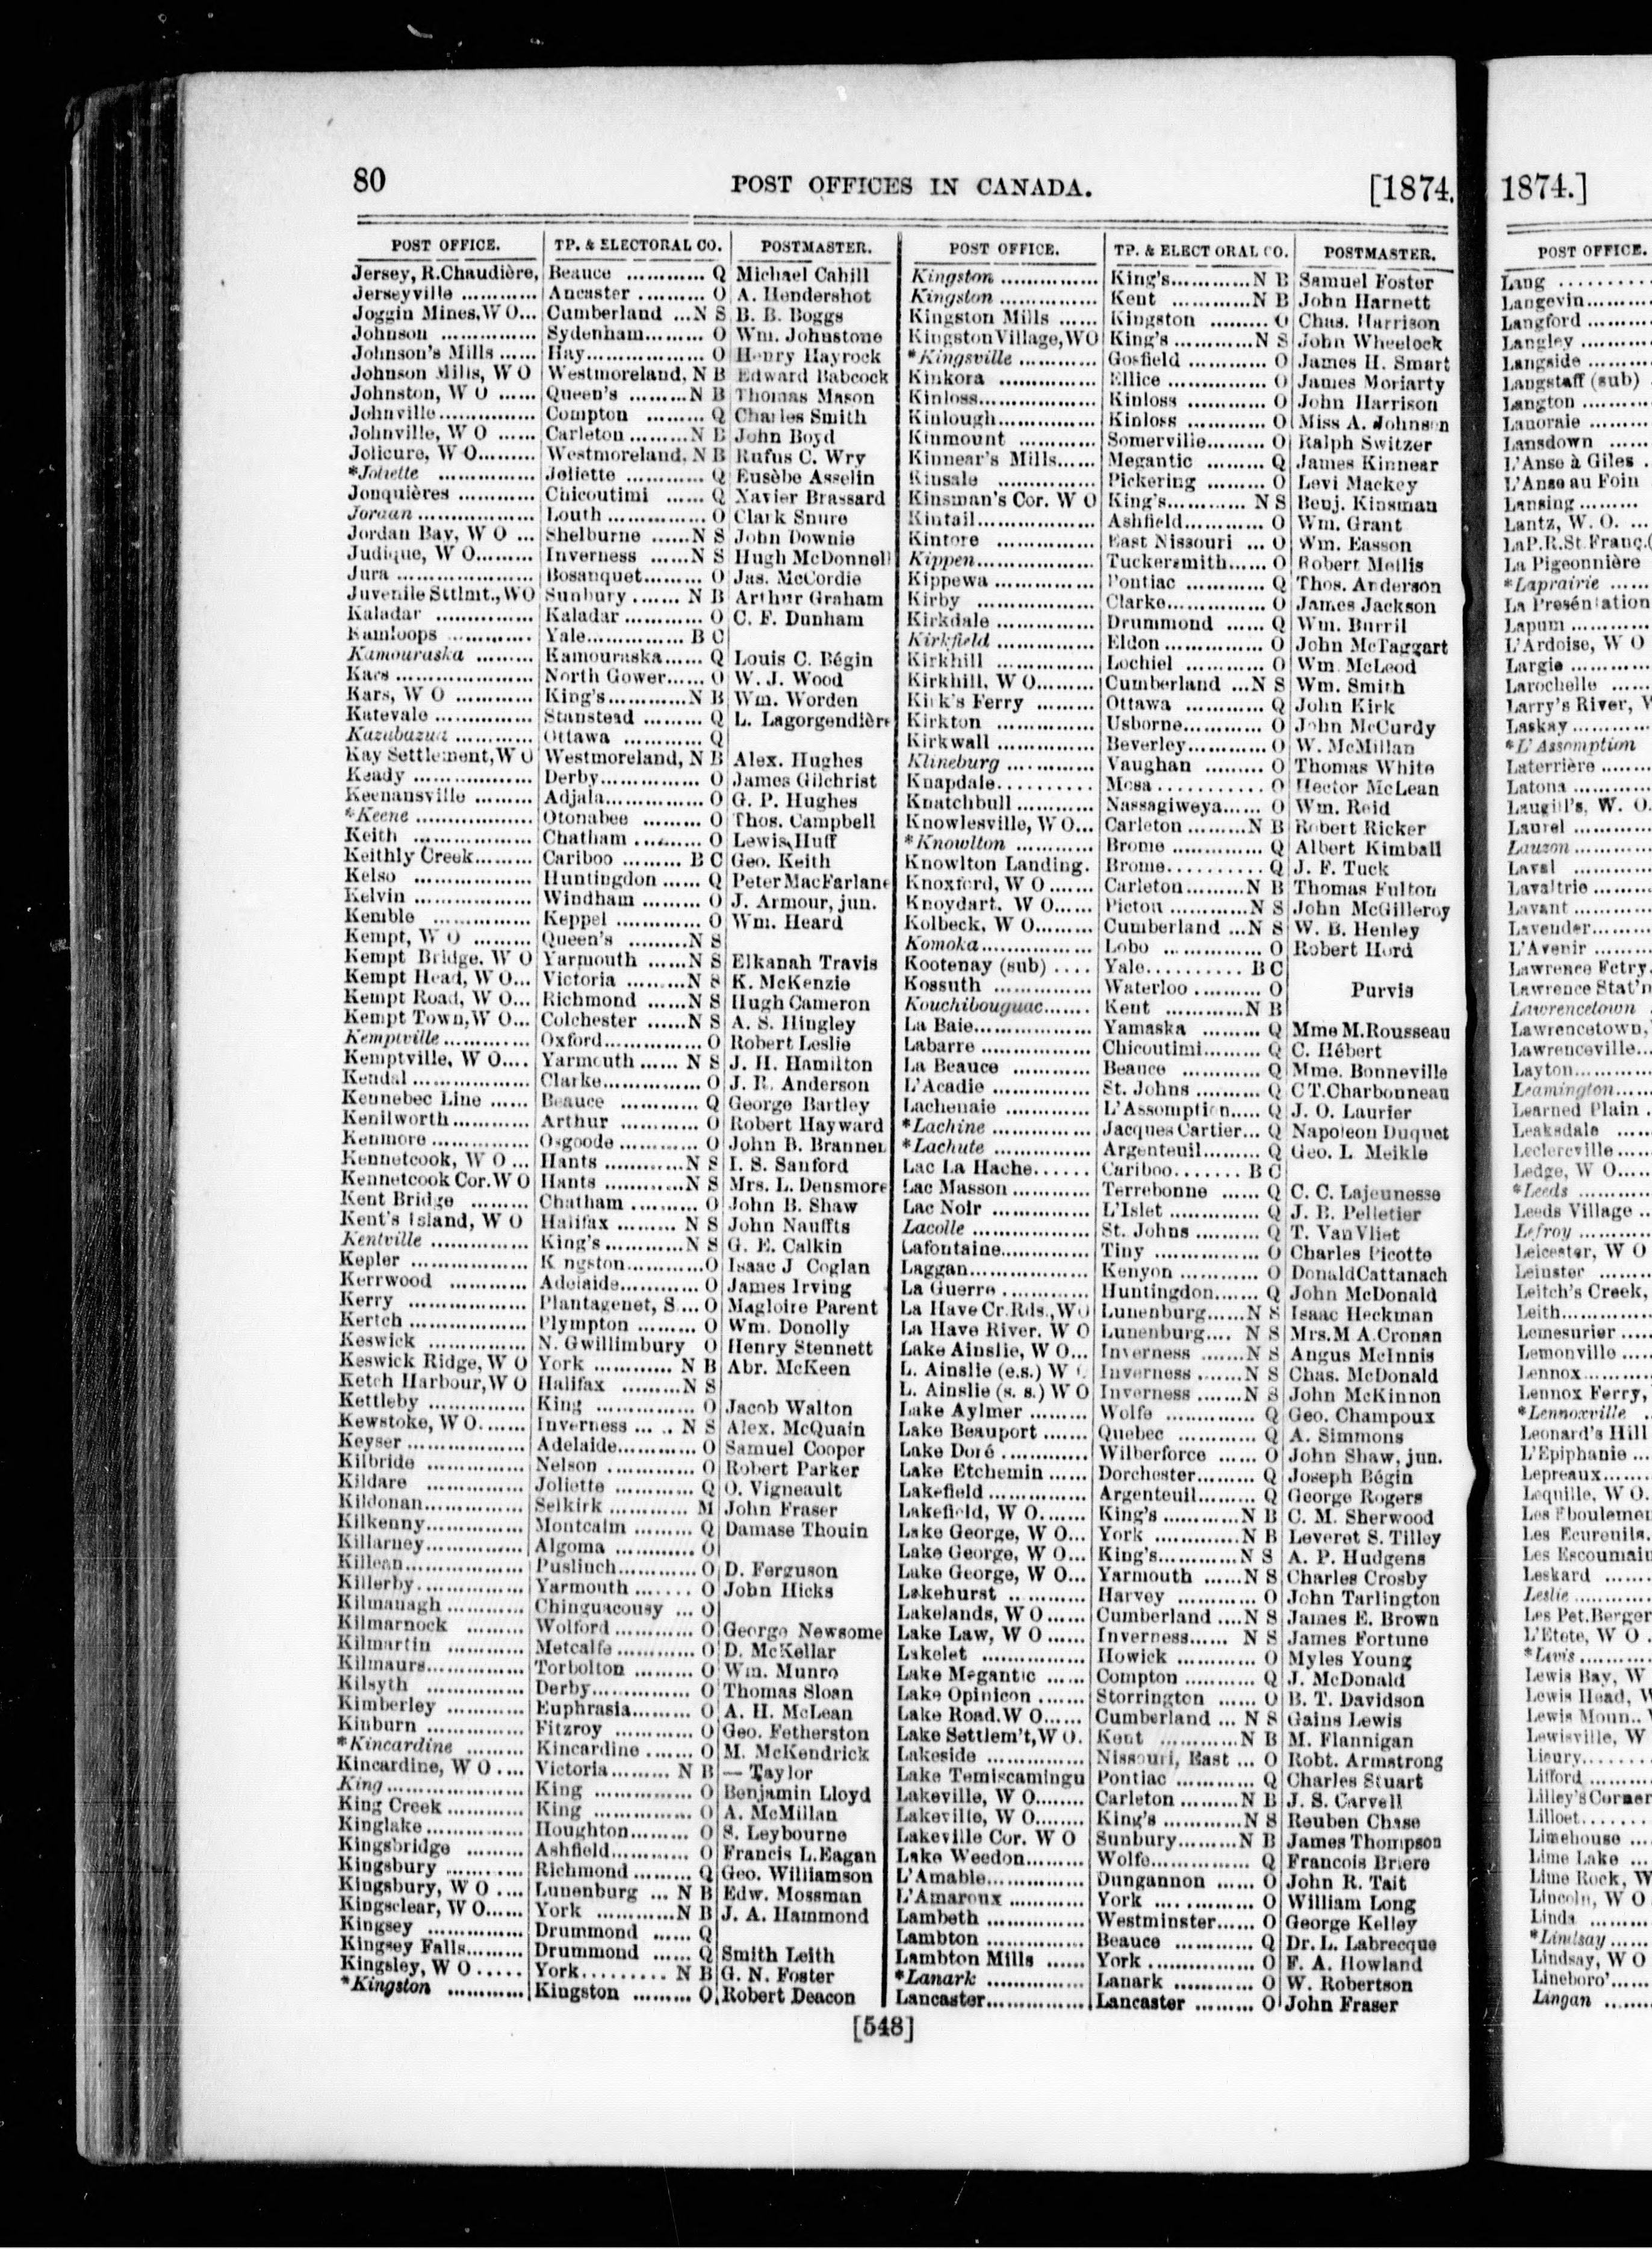 80 POST OFFICES IN CANADA. [1874.
POST OFFICE. TP. & ELECTORAL CO. POSTMASTER.
Jersey, R.Chaudière, Beauce ............ Q Michael Cahill
Jerseyville ............ Ancaster .......... O A. Hendershot
Joggin Mines,W O... Cumberland ...N S B. B. Boggs
Johnson .............. Sydenham......... O Wm. Johnstone
Johnson's Mills ...... Hay................. O Henry Hayrock
Johnson Mills, W O Westmoreland, N B Edward Babcock
Johnston, W O ...... Queen's .........N B Thomas Mason
Johnville............... Compton ......... Q Charles Smith
Johnville, W O ...... Carleton .........N B John Boyd
Jolicure, W O......... Westmoreland, N B Rufus C. Wry
*Joliette ............... Joliette ............ Q Eusèbe Asselin
Jonquières ............ Chicoutimi ...... Q Xavier Brassard
Jordan .................. Louth ............... O Clark Snure
Jordan Bay, W O ... Shelburne ......N S John Downie
Judique, W O......... Inverness ......N S Hugh McDonnell
Jura ..................... Bosanquet......... O Jas. McCordie
Juvenile Sttlmt., W O Sunbury ....... N B Arthur Graham
Kaladar ............... Kaladar ............ O C. F. Dunham
Kamloops ............ Yale............... B C
Kamouraska ......... Kamouraska...... Q Louis C. Bégin
Kars ..................... North Gower...... O W. J. Wood
Kars, W O ............ King's............N B Wm. Worden
Katevale ............... Stanstead ......... Q L. Lagorgendière
Kazabazua ............ Ottawa ............ Q
Kay Settlement,W O Westmoreland, N B Alex. Hughes
Keady .................. Derby............... O James Gilchrist
Keenansville ......... Adjala............... O G. P. Hughes
*Keene .................. Otonabee ......... O Thos. Campbell
Keith .................. Chatham .......... O Lewis Huff
Keithly Creek......... Cariboo ......... B C Geo. Keith
Kelso .................. Huntingdon ...... Q Peter MacFarlane
Kelvin .................. Windham ......... O J. Armour, jun.
Kemble ............... Keppel ............ O Wm. Heard
Kempt, W O ......... Queen's .........N S
Kempt Bridge, W O Yarmouth ......N S Elkanah Travis
Kempt Head, W O... Victoria .........N S K. McKenzie
Kempt Road, W O... Richmond ......N S Hugh Cameron
Kempt Town,W O... Colchester ......N S A. S. Hingley
Kemptville ............. Oxford............... O Robert Leslie
Kemptville, W O.... Yarmouth...... N S J. H. Hamilton
Kendal .................. Clarke............... O J. R. Anderson
Kennebec Line ...... Beauce ............ Q George Bartley
Kenilworth............ Arthur ............ O Robert Hayward
Kenmore............... Osgoode ............ O John B. Brannen
Kennetcook, W O ... Hants ............N S I. S. Sanford
Kennetcook Cor.W O Hants ............N S Mrs. L. Densmore
Kent Bridge ......... Chatham ............ O John B. Shaw
Kent's Island, W O Halifax ......... N S John Nauffts
Kentville ............... King's............N S G. E. Calkin
Kepler .................. Kingston............O Isaac J Coglan
Kerrwood ............ Adelaide............ O James Irving
Kerry .................. Plantagenet, S ... O Magloire Parent
Kertch .................. Plympton ......... O Wm. Donolly
Keswick ............... N. Gwillimbury O Henry Stennett
Keswick Ridge, W O York ............ N B Abr. McKeen
Ketch Harbour,W O Halifax .........N S
Kettleby ............... King ............... O Jacob Walton
Kewstoke, W O....... Inverness ... .. N S Alex. McQuain
Keyser .................. Adelaide............ O Samuel Cooper
Kilbride ............... Nelson ............. O Robert Parker
Kildare ............... Joliette ............ Q O. Vigneault
Kildonan............... Selkirk ............ M John Fraser
Kilkenny............... Montcalm ......... Q Damase Thouin
Killarney............... Algoma ............ O
Killean.................. Puslinch............ O D. Ferguson
Killerby................. Yarmouth ....... O John Hicks
Kilmanagh ............ Chinguacousy ... O
Kilmarnock ......... Wolford ............ O George Newsome
Kilmartin ............ Metcalfe ............ O D. McKellar
Kilmaurs............... Torbolton ......... O Wm. Munro
Kilsyth ............... Derby............... O Thomas Sloan
Kimberley ............ Euphrasia......... O A. H. McLean
Kinburn ............... Fitzroy ............ O Geo. Fetherston
*Kincardine ......... Kincardine ....... O M. McKendrick
Kincardine, W O .... Victoria......... N B — Taylor
King..................... King ............... O Benjamin Lloyd
King Creek ............ King ............... O A. McMillan
Kinglake............... Houghton......... O S. Leybourne
Kingsbridge ......... Ashfield............ O Francis L.Eagan
Kingsbury ............ Richmond ......... Q Geo. Williamson
Kingsbury, W O .... Lunenburg ... N B Edw. Mossman
Kingsclear, W O...... York ............N B J. A. Hammond
Kingsey ............... Drummond ...... Q
Kingsey Falls......... Drummond ...... Q Smith Leith
Kingsley, W O ...... York......... N B G. N. Foster
*Kingston ............ Kingston ......... O Robert Deacon
POST OFFICE. TP. & ELECTORAL CO. POSTMASTER.
Kingston ............... King's............N B Samuel Foster
Kingston ............... Kent ............N B John Harnett
Kingston Mills ...... Kingston ......... O Chas. Harrison
Kingston Village,W O King's............N S John Wheelock
*Kingsville ............ Gosfield ............ O James H. Smart
Kinkora ............... Ellice ............... O James Moriarty
Kinloss.................. Kinloss ............ O John Harrison
Kinlough............... Kinloss ............ O Miss A. Johnson
Kinmount ............ Somerville......... O Ralph Switzer
Kinnear's Mills...... Megantic ......... Q James Kinnear
Kinsale ............... Pickering ......... O Levi Mackey
Kinsman's Cor. W O King's............ N S Benj. Kinsman
Kintail.................. Ashfield............ O Wm. Grant
Kintore ............... East Nissouri ... O Wm. Easson
Kippen.................. Tuckersmith...... O Robert Mellis
Kippewa ............... Pontiac ............ Q Thos. Anderson
Kirby .................. Clarke............... O James Jackson
Kirkdale ............... Drummond ...... Q Wm. Burril
Kirkfield ............... Eldon ............... O John McTaggart
Kirkhill ............... Lochiel ............ O Wm. McLeod
Kirkhill, W O......... Cumberland ...N S Wm. Smith
Kirk's Ferry ......... Ottawa ............ Q John Kirk
Kirkton ............... Usborne............ O John McCurdy
Kirkwall ............... Beverley............ O W. McMillan
Klineburg ............. Vaughan ......... O Thomas White
Knapdale.......... Mosa ........... O Hector McLean
Knatchbull ............ Nassagiweya...... O Wm. Reid
Knowlesville, W O... Carleton .........N B Robert Ricker
*Knowlton ............ Brome ............. Q Albert Kimball
Knowlton Landing. Brome.......... Q J. F. Tuck
Knoxford, W O ....... Carleton.........N B Thomas Fulton
Knoydart, W O...... Pictou ............N S John McGilleroy
Kolbeck, W O......... Cumberland ...N S W. B. Henley
Komoka................. Lobo ............... O Robert Hord
Kootenay (sub) .... Yale.......... B C
Kossuth ............... Waterloo .......... O Purvis
Kouchibouguac....... Kent ............N B
La Baie.................. Yamaska ......... Q Mme M.Rousseau
Labarre ............... Chicoutimi......... Q C. Hébert
La Beauce ............ Beauce ............ Q Mme. Bonneville
L'Acadie ............... St. Johns .......... Q C T.Charbonneau
Lachenaie ............ L'Assomption..... Q J. O. Laurier
*Lachine ............... Jacques Cartier... Q Napoleon Duquet
*Lachute ............... Argenteuil......... Q Geo. L Meikle
Lac La Hache...... Cariboo....... B C
Lac Masson ............ Terrebonne ...... Q C. C. Lajeunesse
Lac Noir ............... L'Islet ............... Q J. B. Pelletier
Lacolle .................. St. Johns .......... Q T. VanVliet
Lafontaine............. Tiny ............... O Charles Picotte
Laggan.................. Kenyon ............ O DonaldCattanach
La Guerre ............. Huntingdon....... Q John McDonald
La Have Cr.Rds.,W O Lunenburg......N S Isaac Heckman
La Have River, W O Lunenburg.... N S Mrs.M A.Cronan
Lake Ainslie, W O... Inverness .......N S Angus McInnis
L. Ainslie (e.s.) W O Inverness .......N S Chas. McDonald
L. Ainslie (s. s.) W O Inverness .......N S John McKinnon
Lake Aylmer ......... Wolfe .............. Q Geo. Champoux
Lake Beauport ....... Quebec ............ Q A. Simmons
Lake Doré ............. Wilberforce ...... O John Shaw, jun.
Lake Etchemin ...... Dorchester......... Q Joseph Bégin
Lakefield ............... Argenteuil......... Q George Rogers
Lakefield, W O....... King's ............N B C. M. Sherwood
Lake George, W O... York ............N B Leveret S. Tilley
Lake George, W O... King's............N S A. P. Hudgens
Lake George, W O... Yarmouth ......N S Charles Crosby
Lakehurst ............ Harvey ............ O John Tarlington
Lakelands, W O...... Cumberland ....N S James E. Brown
Lake Law, W O ...... Inverness...... N S James Fortune
Lakelet ............... Howick ............ O Myles Young
Lake Megantic ...... Compton ......... Q J. McDonald
Lake Opinicon ....... Storrington ...... O B. T. Davidson
Lake Road,W O...... Cumberland ... N S Gains Lewis
Lake Settlem't,W O. Kent ............N B M. Flannigan
Lakeside ............... Nissouri, East ... O Robt. Armstrong
Lake Temiscamingu Pontiac ............ Q Charles Stuart
Lakeville, W O........ Carleton .........N B J. S. Carvell
Lakeville, W O........ King's ............N S Reuben Chase
Lakeville Cor. W O Sunbury.........N B James Thompson
Lake Weedon......... Wolfe............... Q Francois Briere
L'Amable............... Dungannon ...... O John R. Tait
L'Amaroux ............ York ............... O William Long
Lambeth ............... Westminster...... O George Kelley
Lambton ............... Beauce ............ Q Dr. L. Labrecque
Lambton Mills ...... York ............... O F. A. Howland
*Lanark ............... Lanark ............ O W. Robertson
Lancaster............... Lancaster ......... O John Fraser
[548]
1874.]
POST OFFICE.
Lang ..........
Langevin..........
Langford ..........
Langley ..........
Langside ..........
Langstaff (sub)
Langton ..........
Lanoraie ..........
Lansdown ......
L'Anse à Giles .
L'Anse au Foin
Lansing .........
Lantz, W. O. ...
LaP.R.St.Franç.(
La Pigeonnière
*Laprairie ......
La Présentation
Lapum ............
L'Ardoise, W O
Largie ............
Larochelle ......
Larry's River, W
Laskay ............
*L'Assomption
Laterrière.........
Latona ............
Laugill's, W. O.
Laurel ............
Lauzon ............
Laval ............
Lavaltrie .........
Lavant ............
Lavender.........
L'Avenir .........
Lawrence Fctry.
Lawrence Stat'n
Lawrencetown
Lawrencetown,
Lawrenceville...
Layton............
Leamington......
Learned Plain .
Leaksdale ......
Leclercville......
Ledge, W O......
*Leeds ............
Leeds Village ..
Lefroy ............
Leicester, W O
Leinster .........
Leitch's Creek,
Leith...............
Lemesurier ......
Lemonville ......
Lennox............
Lennox Ferry,
*Lennoxville ..
Leonard's Hill
L'Epiphanie ....
Lepreaux.........
Lequille, W O.
Les Eboulemen
Les Ecureuils.
Les Escoumain
Leskard .........
Leslie ............
Les Pet.Berger
L'Etete, W O .
*Lévis ............
Lewis Bay, W
Lewis Head, W
Lewis Moun.. W
Lewisville, W
Lieury............
Lifford............
Lilley's Corner
Lilloet............
Limehouse ....
Lime Lake ....
Lime Rock, W
Lincoln, W O
Linda ............
*Lindsay ......
Lindsay, W O
Lineboro'......
Lingan .........